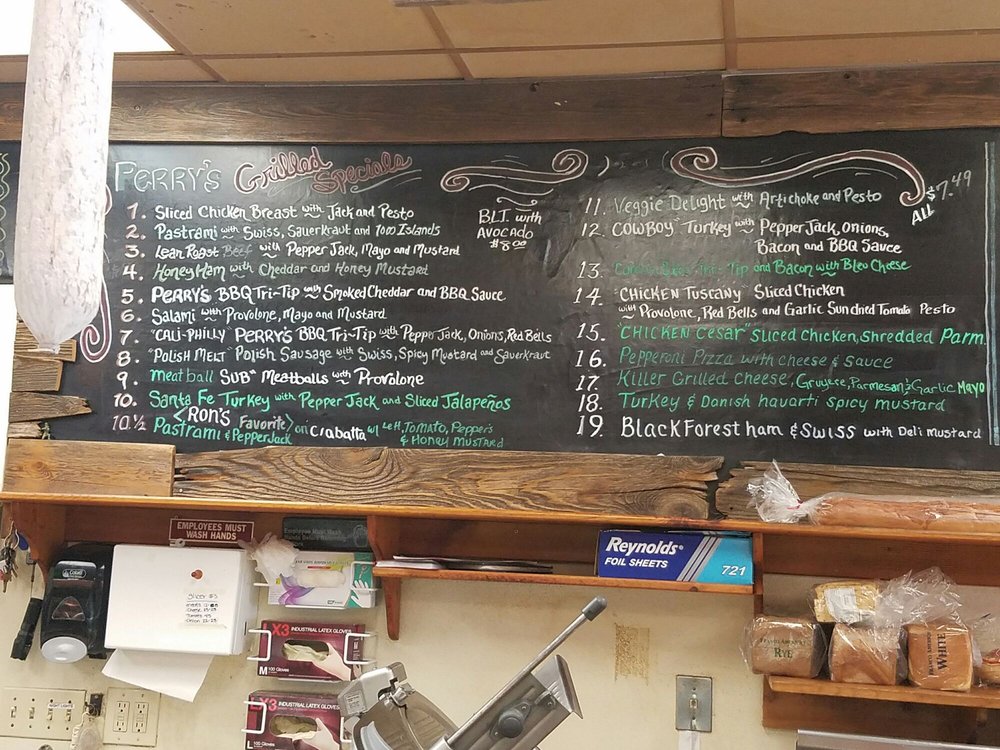 PERRY'S Grilled Specials
1. Sliced Chicken Breast with Jack and Pesto
2. Pastrami with Swiss, Sauerkraut and 1000 Islands
3. Lean Roast Beef with Pepper Jack, Mayo and Mustard
4. Honey Ham with Cheddar and Honey Mustard
5. PERRY'S BBQ Tri-Tip with Smoked Cheddar and BBQ Sauce
6. Salami with Provolone, Mayo and Mustard
7. "CALI-PHILLY" PERRY'S BBQ Tri-Tip with Pepper Jack, Onions, Red Bells
8. "POLISH MELT" Polish Sausage with Swiss, Spicy Mustard and Sauerkraut
9. meatball SUB" Meatballs with Provolone
10. Santa Fe Turkey with Pepper Jack and Sliced Jalapeños
10. ½ <RON'S Favorite>
Pastrami & PepperJack on Ciabatta w/ Lett, Tomato, Pepper's
& Honey Mustard
BLT. with
AVOCADO
$8.00
11. Veggie Delight with Artichoke and Pesto
12. "COWBOY" Turkey with Pepper Jack, Onions,
Bacon and BBQ Sauce
13. Tri-Tip and Bacon with Bleu Cheese
14. "CHICKEN TUSCANY" Sliced Chicken
with Provolone, Red Bells and Garlic Sundried Tomato Pesto
15. "CHICKEN CESAR" Sliced Chicken, Shredded Parm.
16. Pepperoni Pizza with cheese & sauce
17. Killer Grilled Cheese, Gruyere, Parmesan & Garlic Mayo
18. Turkey & Danish havarti spicy mustard
19. Black Forest ham & SWISS with Deli Mustard
ALL $7.49
EMPLOYEES MUST
WASH HANDS
Reynolds
FOIL SHEETS
721
SLICER #3
LX3 INDUSTRIAL LATEX GLOVES
M 100 Gloves
X3 INDUSTRIAL LATEX GLOVES
L
RYE
WHITE